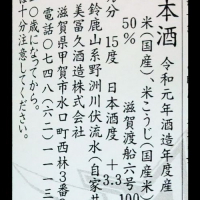 本酒 令和元年酒造年度産
米(国産)、米こうじ(国産米)
滋賀渡船六号100
50%
分 15度 日本酒度 +3.3
鈴鹿山系野洲川伏流水(自家井
美冨久酒造株式会社
滋賀県甲賀市水口町西林3番
電話〇七四八(六二)一一
〇歳になってから。
十分注意してください。